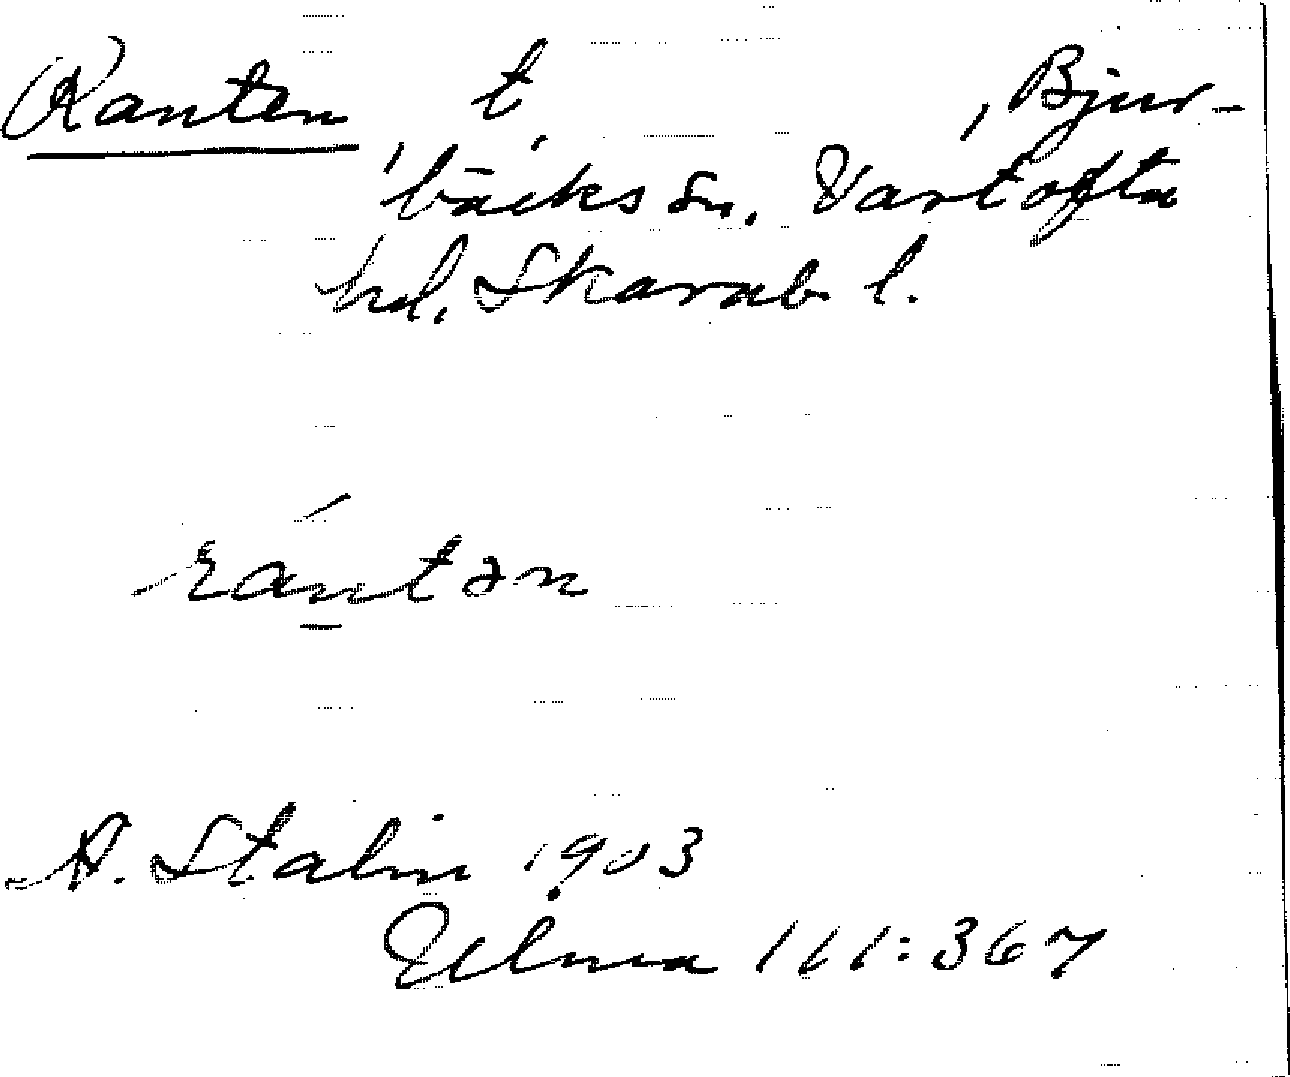 Ranten, t., Bjur-
bäcks sn. Vartofta
hd. Skarab. l.
rántən
A. Stalin 1903
Ulma 111:367